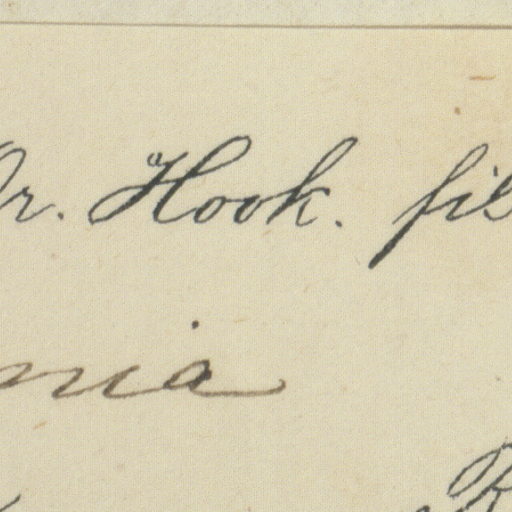 Dr. Hook. fil
nia